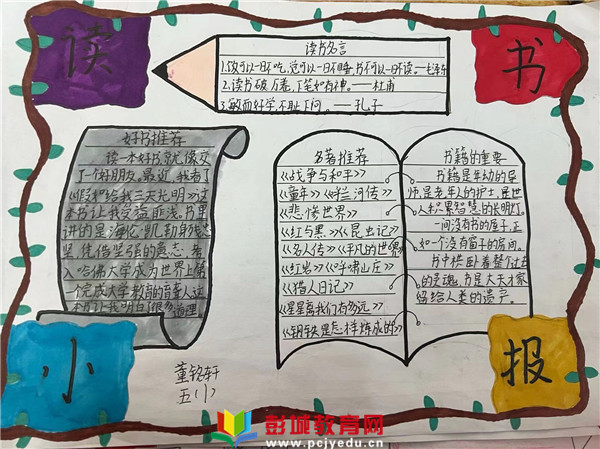 读
书
读书名言
1.饭可以一日不吃,觉可以一日不睡,书不可以一日不读。—毛泽东
2.读书破万卷,下笔如有神。——杜甫
3.敏而好学,不耻下问。——孔子
好书推荐
读一本好书,就像交
了一个好朋友,最近,我看了
《假如给我三天光明》这
本书让我受益匪浅。书里
讲的是海伦·凯勒身残志
坚,凭借坚强的意志,考
入哈佛大学成为世界上第
一个完成大学教育的盲聋人,这
本书让我明白很多道理
名著推荐
《战争与和平》
《童年》《呼兰河传》
《悲惨世界》
《红与黑》《昆虫记》
《名人传》《平凡的世界》
《红岩》《呼啸山庄》
《猎人日记》
《星星离我们有多远》
《钢铁是怎样炼成的》
书籍的重要
书籍是年幼的导
师,是老年人的护士,是世
人积累智慧的长明灯。
一间没有书的房子,正
如一个没有窗子的房间。
书中横卧着整个过去
的灵魂,书是大天才家
留给人类的遗产。
小
报
董铭轩
五(1)
彭城教育网
www.pcjyedu.cn